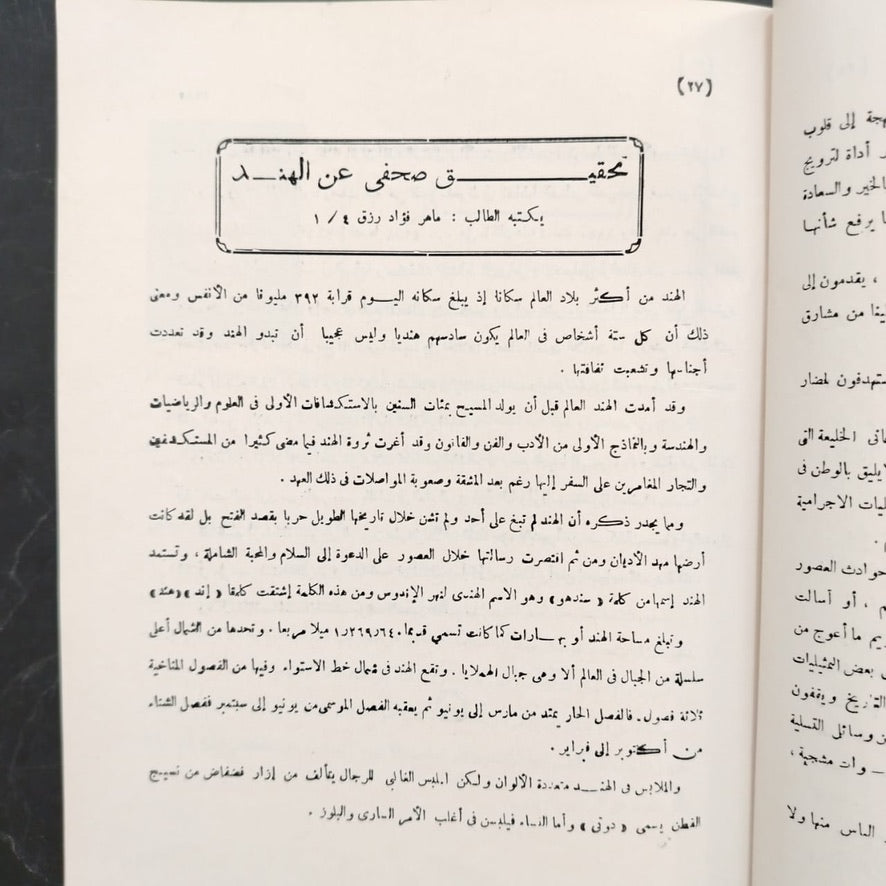 (٢٧)
تحقيق صحفى عن الهند
يكتبه الطالب : ماهر فؤاد رزق ٤ / ١
الهند من أكثر بلاد العالم سكانا إذ يبلغ سكانه اليوم قرابة ٣٩٢ مليونا من الأنفس ومعنى
ذلك أن كل ستة أشخاص فى العالم يكون سادسهم هنديا وليس عجيبا أن تبدو الهند وقد تعددت
أجناسها وتشعبت ثقافتها .
وقد أمدت الهند العالم قبل أن يولد المسيح بمئات السنين بالاستكشافات الأولى فى العلوم والرياضيات
والهندسة وبالنماذج الأولى من الأدب والفن والقانون وقد أغرت ثروة الهند فيما مضى كثيرا من المستكشفين
والتجار المغامرين على السفر إليها رغم بعد المشقة وصعوبة المواصلات فى ذلك العهد .
ومما يجدر ذكره أن الهند لم تبغ على أحد ولم تشن خلال تاريخها الطويل حربا بقصد الفتح بل لقد كانت
أرضها مهد الأديان ومن ثم اقتصرت رسالتها خلال العصور على الدعوة إلى السلام والمحبة الشاملة ، وتستمد
الهند إسمها من كلمة « سندهو » وهو الاسم الهندى لنهر الإندوس ومن هذه الكلمة إشتقت كلمتا « إند » « هند »
وتبلغ مساحة الهند أو بهارات كما كانت تسمى قديما ١٫٢٦٩٫٦٤٠ ميلا مربعا . وتحدها من الشمال أعلى
سلسلة من الجبال فى العالم ألا وهى جبال الهملايا . وتقع الهند فى شمال خط الاستواء وفيها من الفصول المناخية
ثلاثة فصول . فالفصل الحار يمتد من مارس إلى يونيو ثم يعقبه الفصل الموسمى من يونيو إلى سبتمبر ففصل الشتاء
من أكتوبر إلى فبراير .
والملابس فى الهند متعددة الألوان ولكن املبس الغالبى للرجال يتألف من إزار فضفاض من نسيج
القطن يسمى « دوتى » وأما النساء فيلبسن فى أغلب الأمر السارى والبلوز .
بهجة إلى قلوب
أداة لترويج
الخير والسعادة
ما يرفع شأنها
، يقدمون إلى
من مشارق
ستهدفون لمضار
الخليعة التى
لايليق بالوطن فى
الاجرامية
حوادث العصور
، أو أسالت
ما أعوج من
بعض التمثيليات
التاريخ ويقفون
ن وسائل التسلية
وات مشجية ،
الناس منها ولا